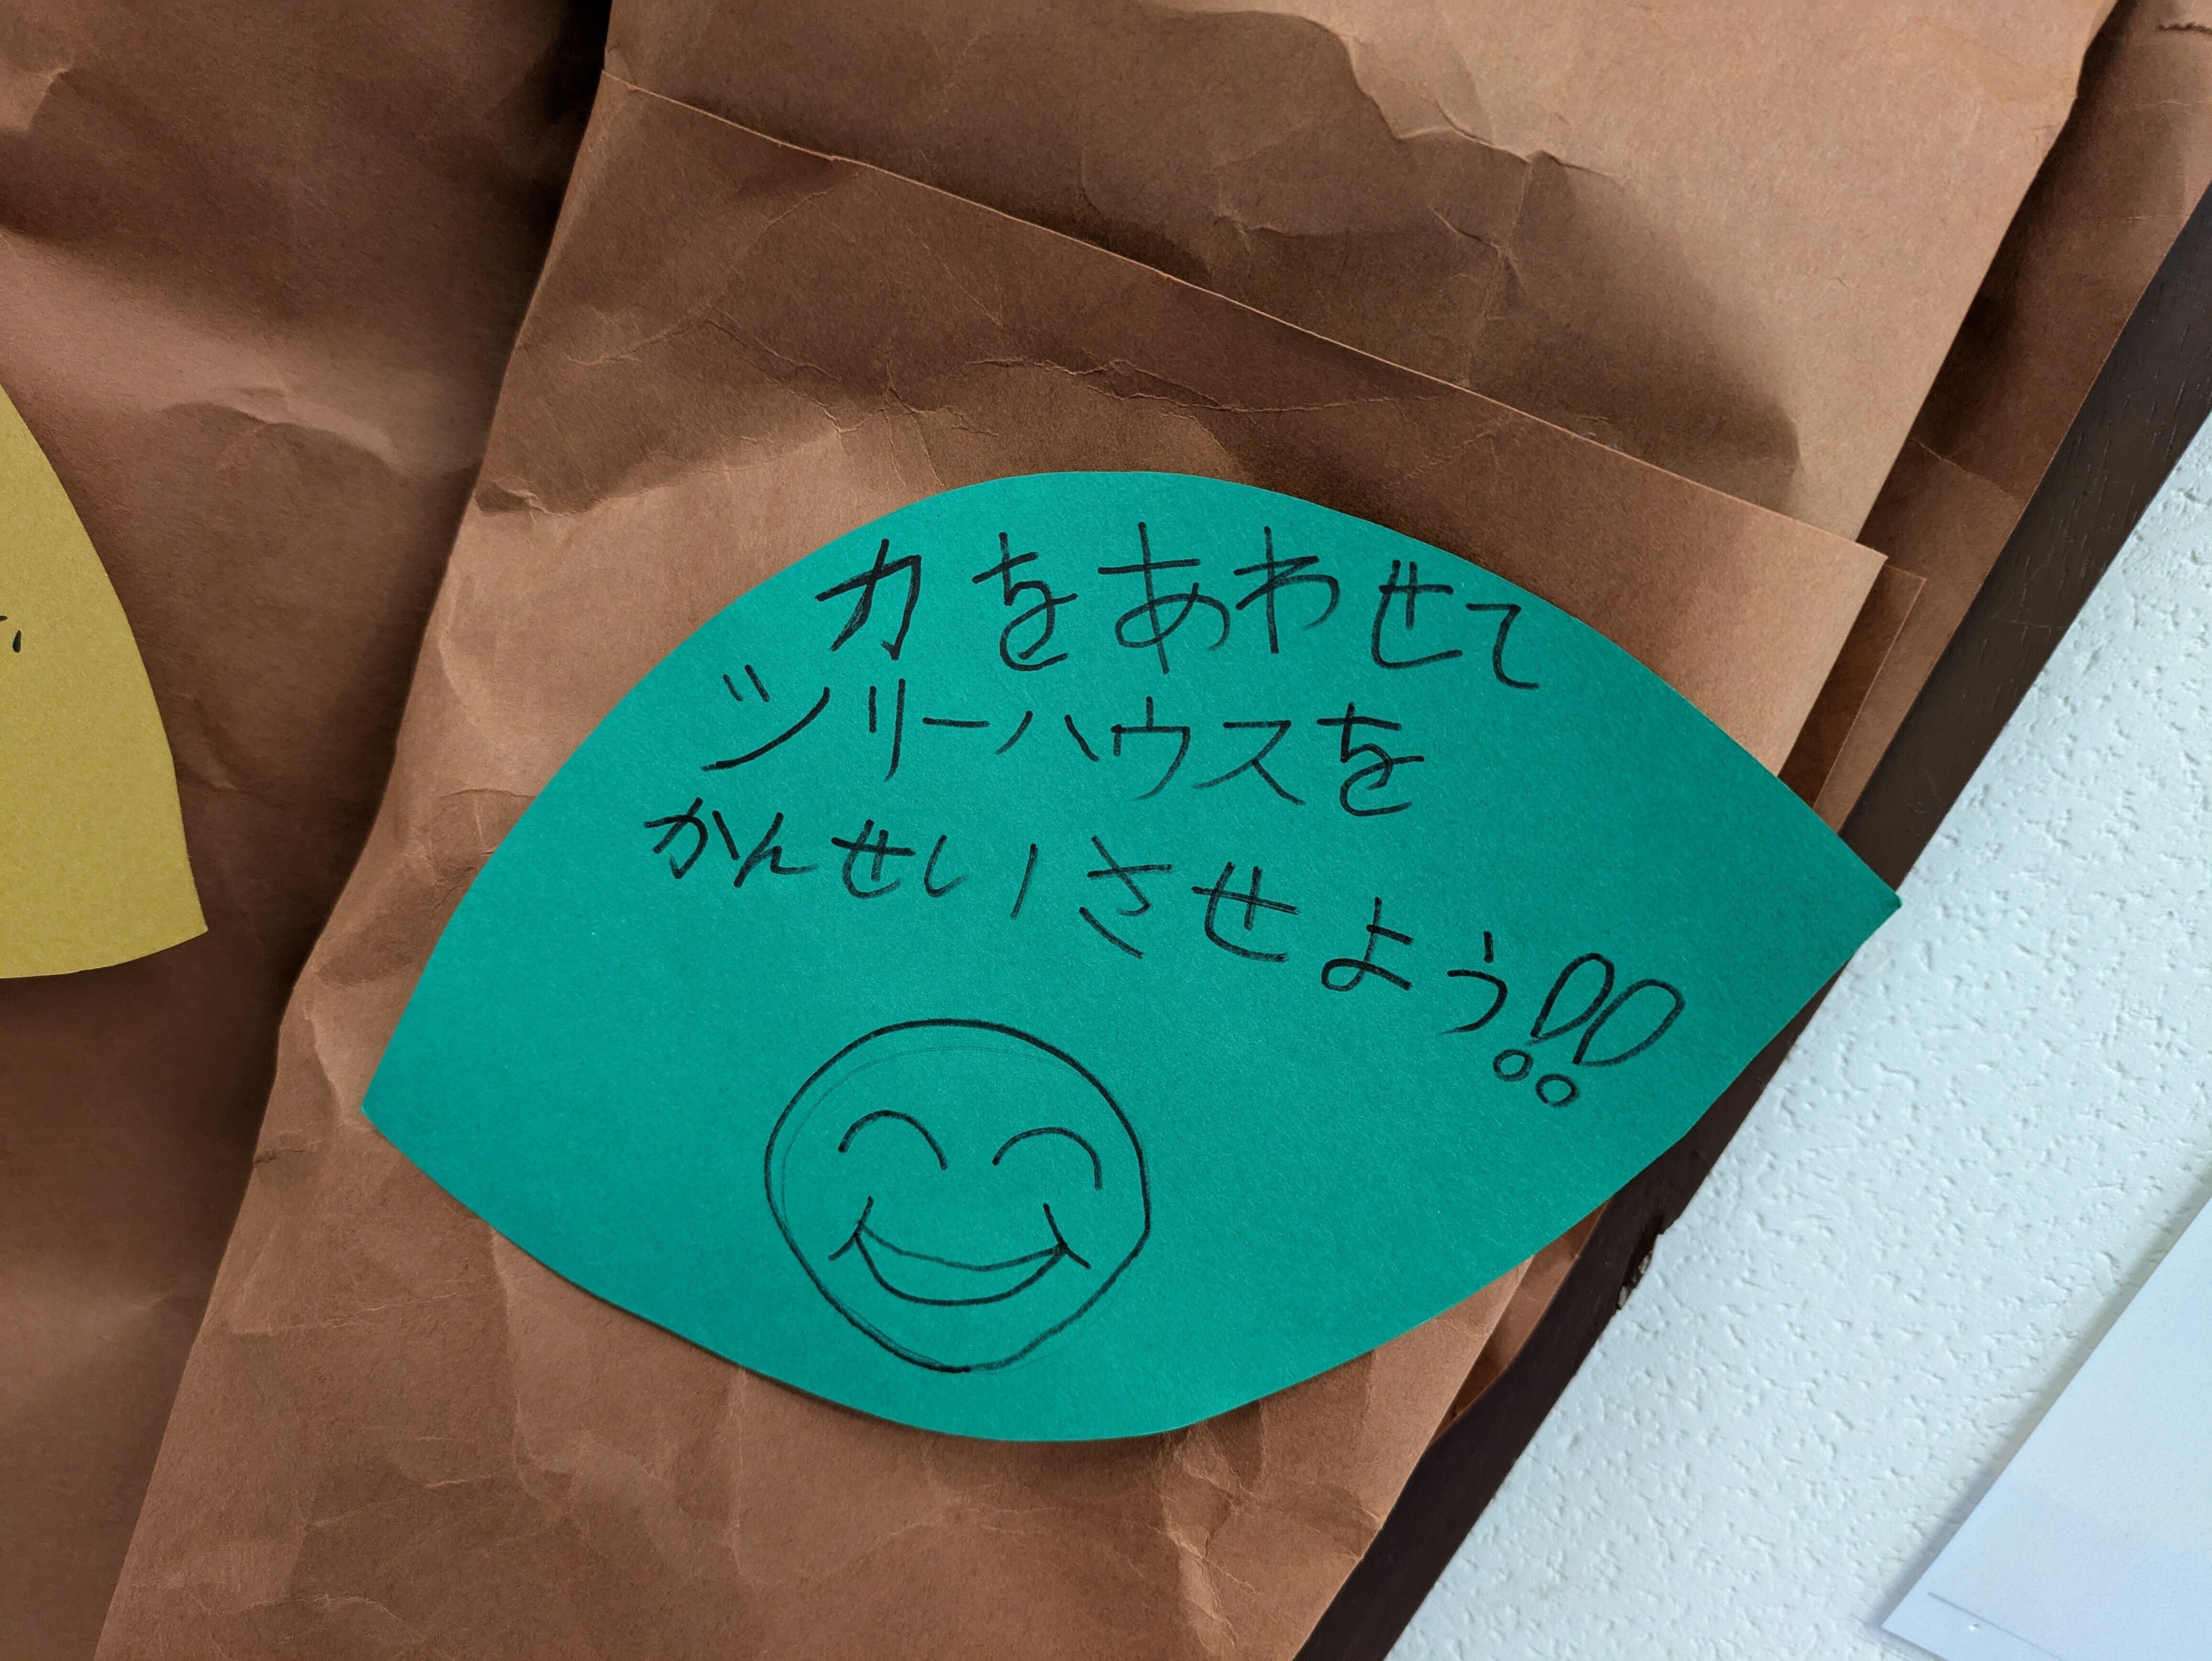 力をあわせて
ツリーハウスを
かんせいさせよう!!